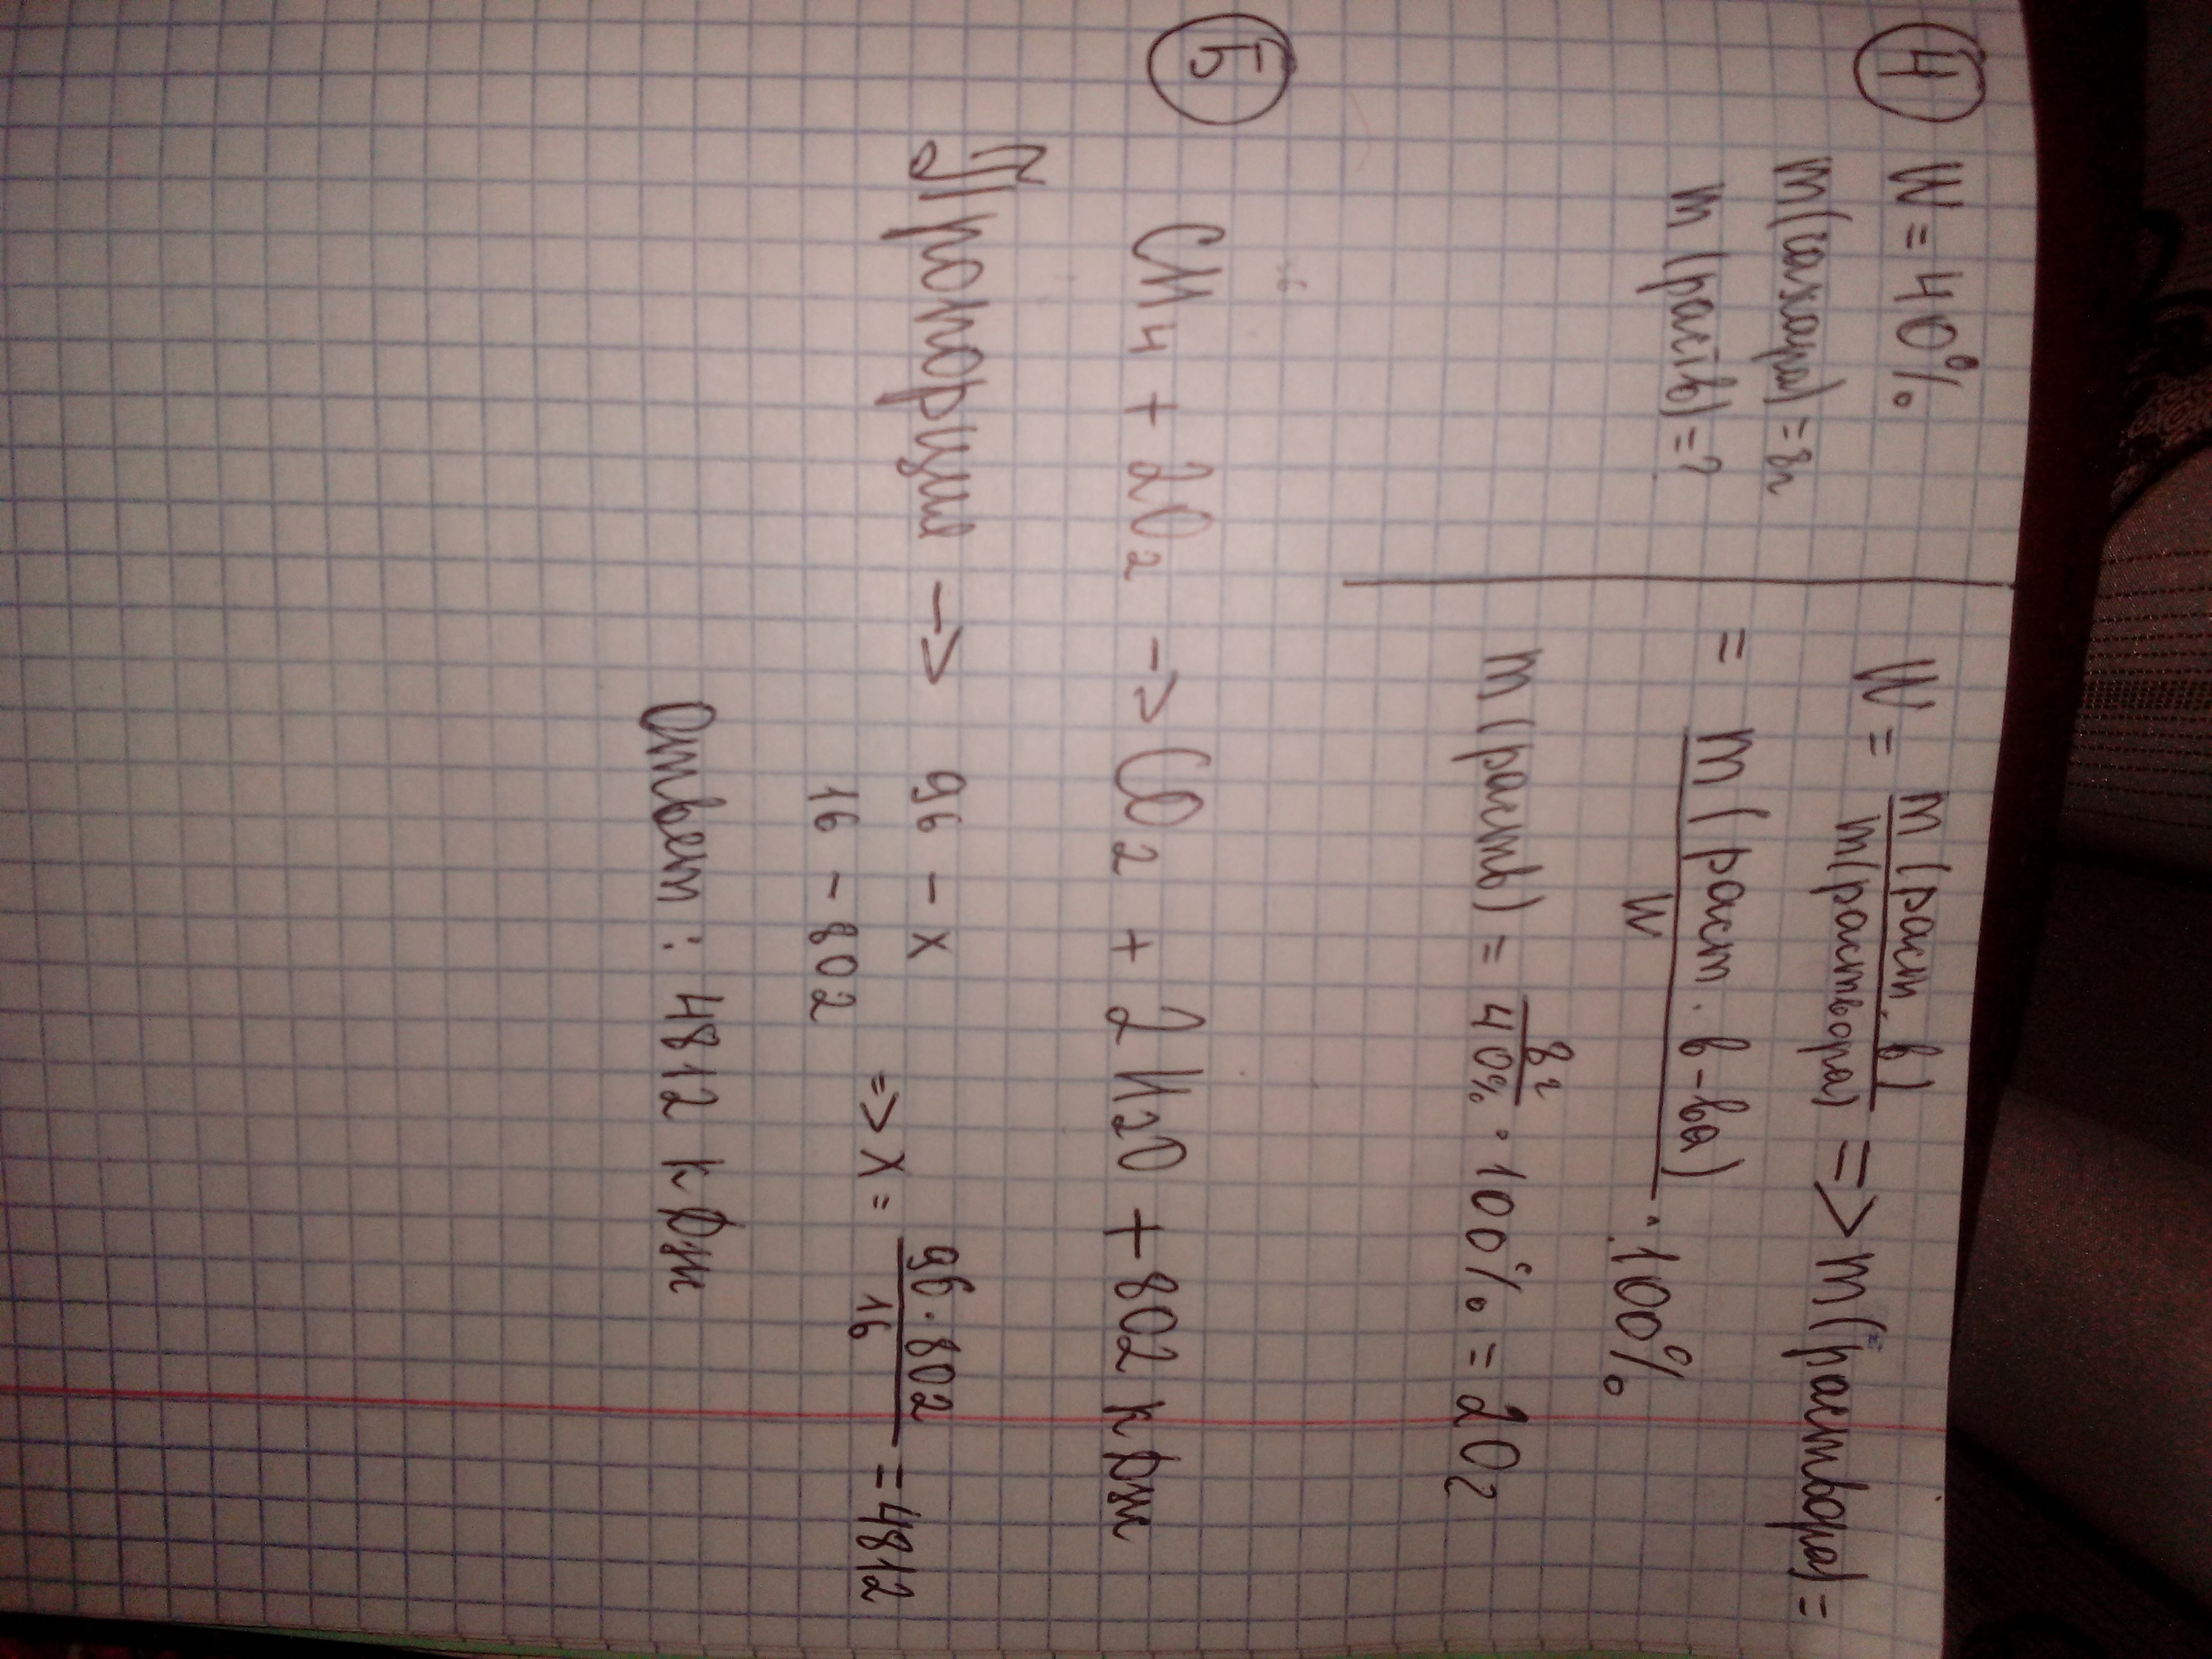 4 W = 40%
m(сахара) = 8г
m(раств) = ?
W = m(раст. в) / m(раствора) => m(раствора) =
= m(раст. в-ва) / W · 100%
m(раств) = 8г / 40% · 100% = 20г
5
CH4 + 2O2 -> CO2 + 2H2O + 802 кДж
Пропорция -> 96 - x
16 - 802
=> x = 96 · 802 / 16 = 4812
Ответ: 4812 кДж